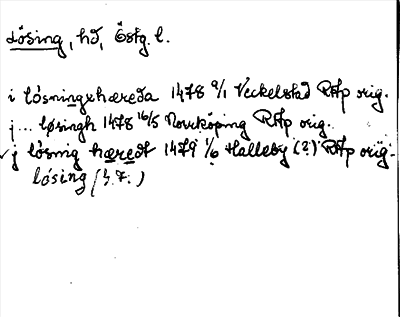 Lösing, hd, Östg. l.
i lösningxhæreda 1478 9/1 Veckelstad RAp orig.
j... løsingh 1478 16/5 Norrköping RAp orig.
j lösnig hæredt 1479 1/6 Halleby (?) RAp orig.
lösing (s.7.)